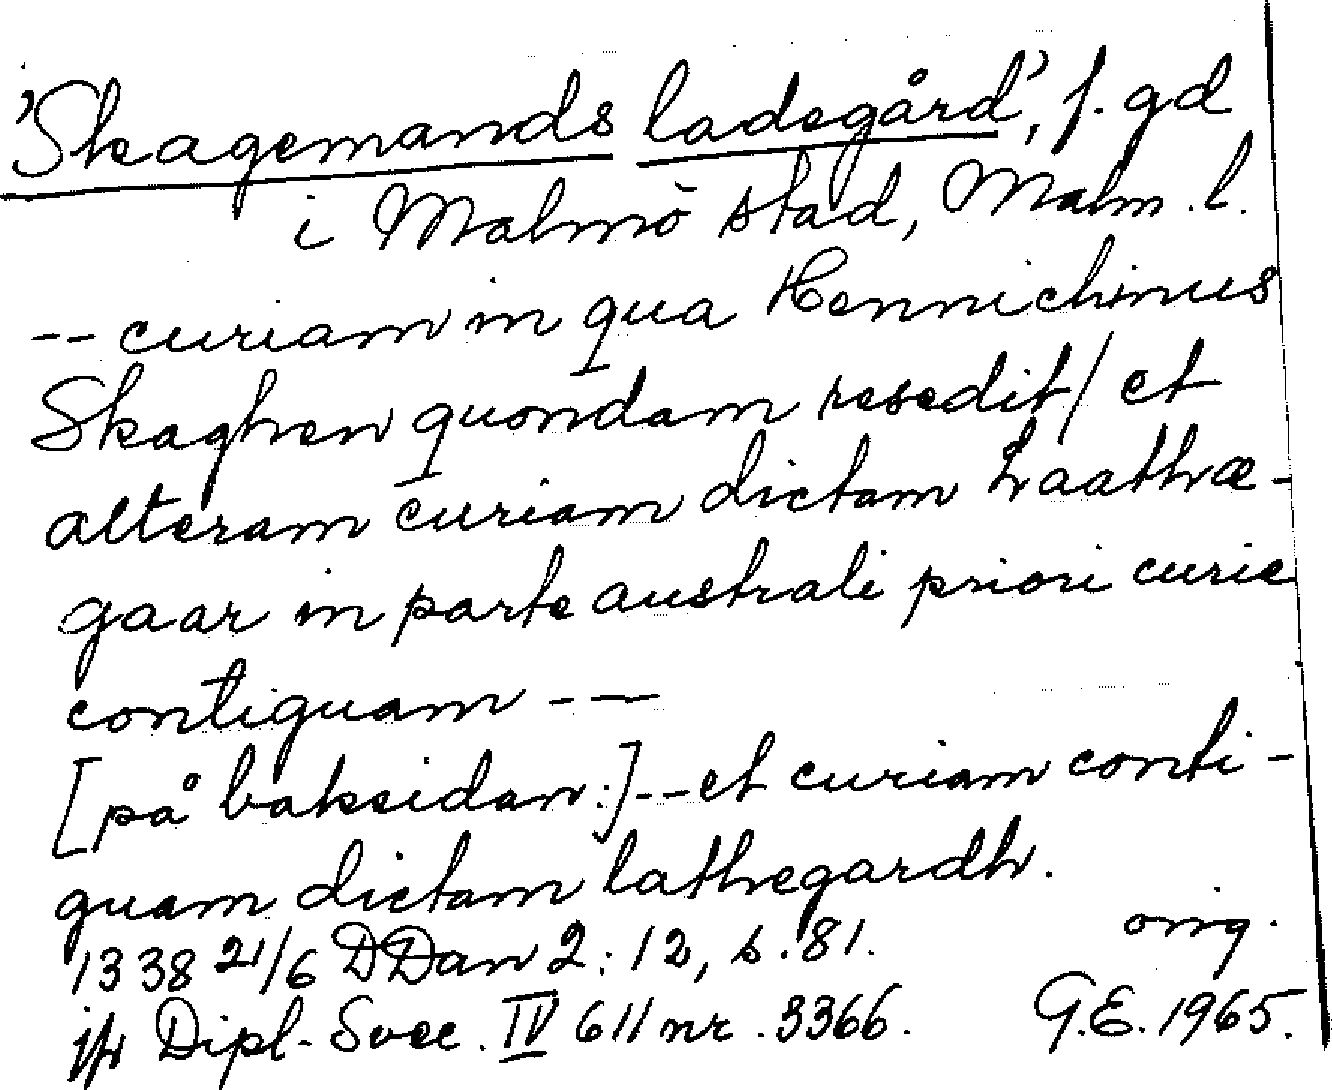 'Skagemands ladegård', f. gd
i Malmö stad, Malm. l.
-- curiam in qua Hennichinus
Skaghen quondam resedit/ et
alteram curiam dictam Laathæ-
gaar in parte australi priori curie
contiguam --
[på baksidan:] -- et curiam conti-
guam dictam lathegardh.
1338 21/6 DDan 2:12, s. 81. orig.
jfr Dipl. Svec. IV 611 nr. 3366. G.E. 1965.